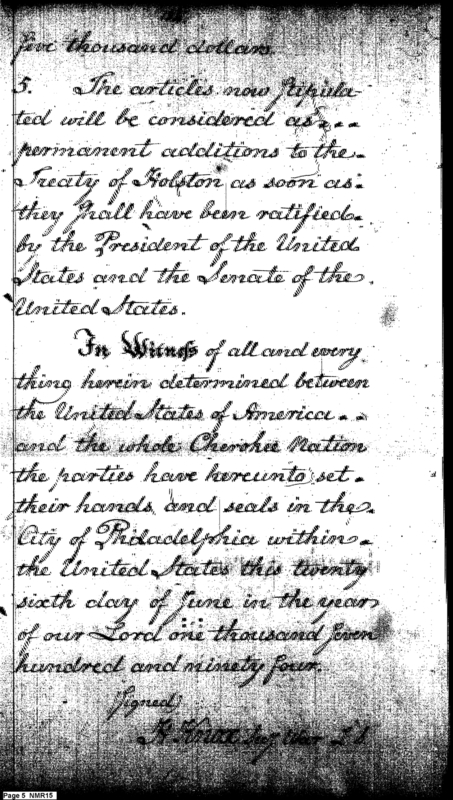 five thousand dollars.
5. The articles now stipula
ted will be considered as
permanent additions to the
Treaty of Holston as soon as
they shall have been ratified
by the President of the United
States and the Senate of the
United States.
In Witness of all and every
thing herein determined between
the United States of America
and the whole Cherokee Nation
the parties have hereunto set
their hands and seals in the
City of Philadelphia within
the United States this twenty
sixth day of June in the year
of our Lord one thousand seven
hundred and ninety four.
Signed
H Knox Secy War L S
Page 5 NMR15